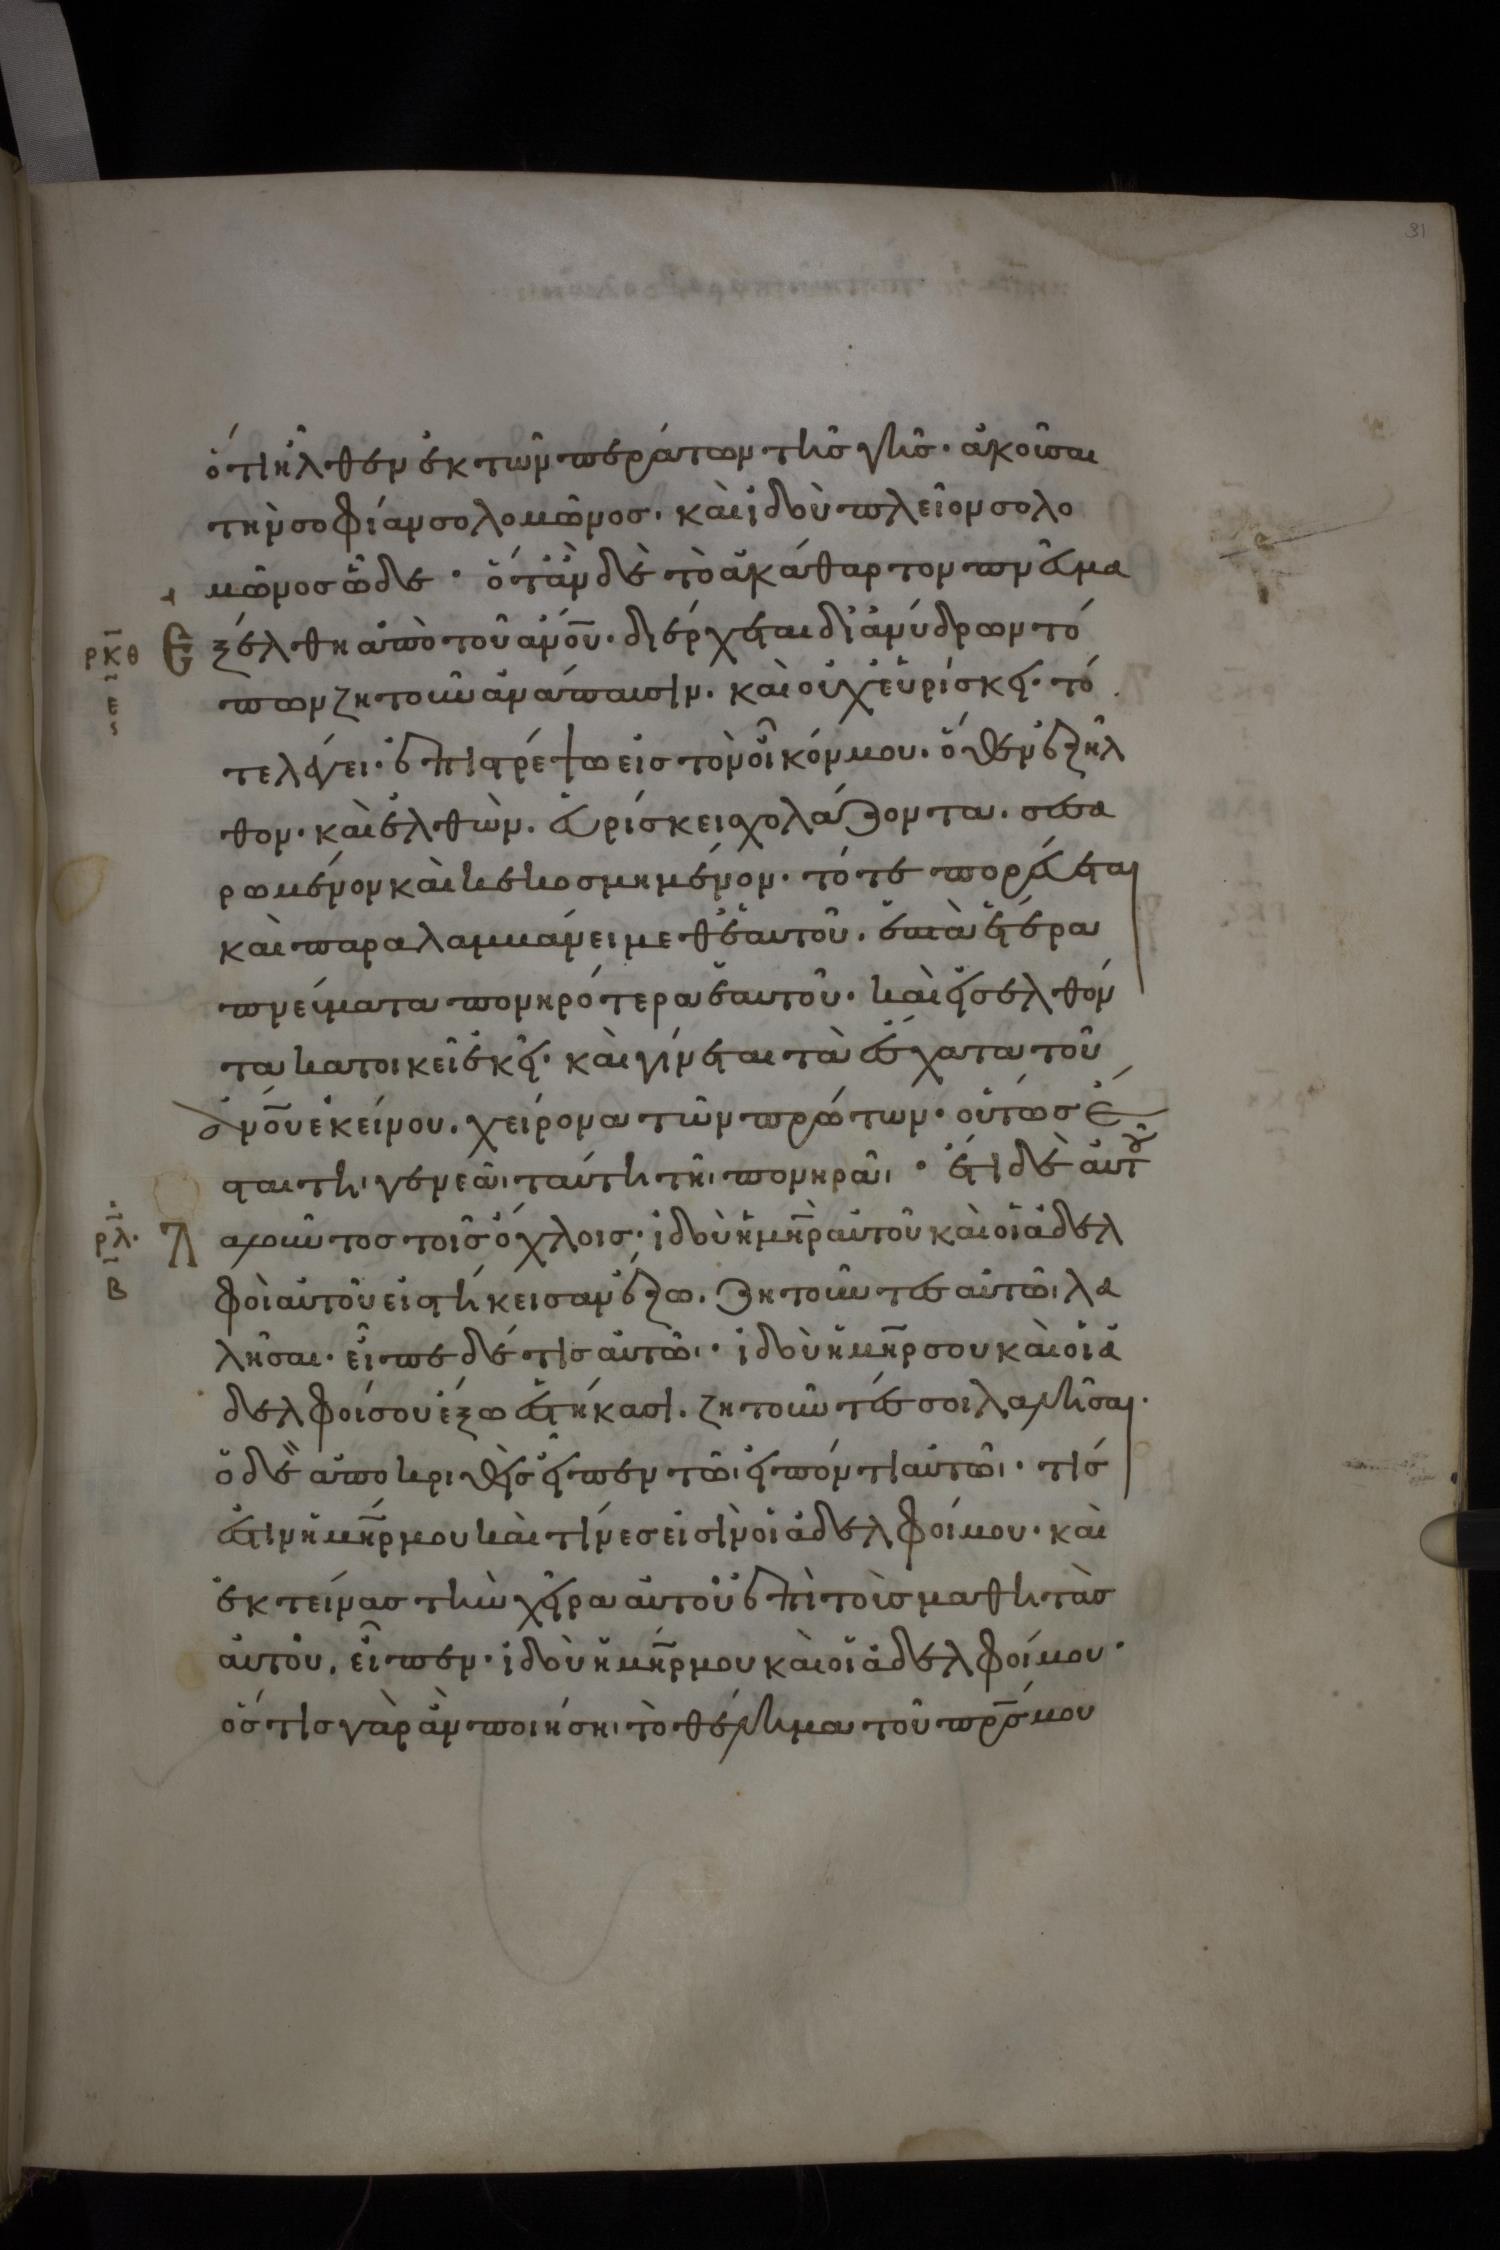 31
ὅτι ἦλθεν ἐκ τῶν περάτων τῆς γῆς· ἀκοῦσαι
τὴν σοφίαν σολομῶνος. καὶ ἰδοὺ πλεῖον σολο
μῶνος ὧδε· ὅτὰν δὲ τὸ ἀκάθαρτον πνεῦμα
ρκθ Ἐξέλθη ἀπὸ τοῦ ἀνο̅υ̅· διέρχεται δι ἀνύδρων τό
ε πων ζητοῦν ἀνάπαυσιν. καὶ οὐχ εὑρίσκει· τό
τε λέγει· ἐπιστρέψω εἰς τὸν οἶκόν μου. ὅθεν ἐξῆλ
θον· καὶ ἐλθὼν. εὑρίσκει σχολάζοντα. σεσα
ρωμένον καὶ κεκοσμημένον· τότε πορεύεται
καὶ παραλαμβάνει μεθ ἑαυτοῦ. ἑπτὰ ἕτερα
πνεύματα πονηρότερα ἑαυτοῦ· καὶ εἰσελθόν
τα κατοικεῖ ἐκεῖ· καὶ γίνεται τὰ ἔσχατα τοῦ
ἀνο̅υ̅ ἐκείνου. χείρονα τῶν πρώτων· οὕτως ἔ
σται τῆι γενεᾶι ταύτη τῆι πονηρᾶι· ἔτι δὲ αὐτοῦ
ρλ Λαλοῦντος τοῖς ὄχλοις· ἰδοὺ ἡ μη̅ρ̅ αὐτοῦ καὶ οἱ ἀδελ
β φοὶ αὐτοῦ εἱστήκεισαν ἔξω. ζητοῦντες αὐτῶι λα
λῆσαι· εἶπε δέ τις αὐτῶι· ἰδοὺ ἡ μη̅ρ̅ σου καὶ οἱ ἀ
δελφοί σου ἔξω ἑστήκασι. ζητοῦντές σοι λαλῆσαι·
ὁ δὲ ἀποκριθεὶς εἶπεν τῶι εἰπόντι αὐτῶι· τίς
ἐστιν ἡ μη̅ρ̅ μου καὶ τίνες εἰσὶν οἱ ἀδελφοί μου· καὶ
ἐκτείνας τὴν χεῖρα αὐτοῦ ἐπὶ τοὺς μαθητὰς
αὐτοῦ. εἶπεν· ἰδοὺ ἡ μη̅ρ̅ μου καὶ οἱ ἀδελφοί μου·
ὅστις γὰρ ἂν ποιήσηι τὸ θέλημα τοῦ πρ̅σ̅ μου